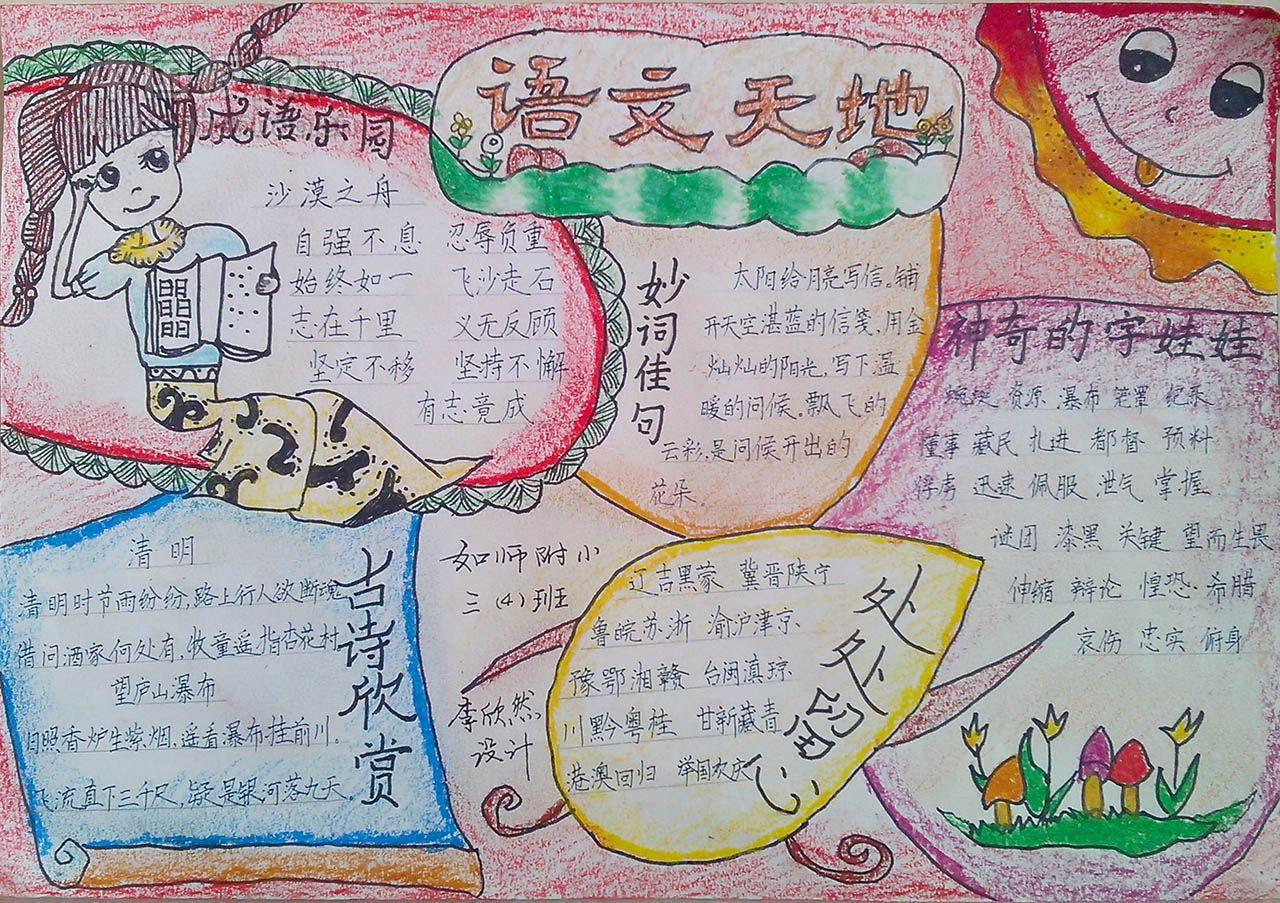 语文天地
成语乐园
沙漠之舟
自强不息 忍辱负重
始终如一 飞沙走石
志在千里 义无反顾
坚定不移 坚持不懈
有志竟成
妙词佳句
太阳给月亮写信。铺
开天空湛蓝的信笺,用金
灿灿的阳光,写下温
暖的问候,飘飞的
云彩,是问候开出的
花朵。
神奇的字娃娃
资源 瀑布 笼罩 纪录
懂事 藏民 扎进 都督 预料
俘虏 迅速 佩服 泄气 掌握
谜团 漆黑 关键 望而生畏
伸缩 辩论 惶恐 希腊
哀伤 忠实 俯身
古诗欣赏
清明
清明时节雨纷纷,路上行人欲断魂
借问酒家何处有,牧童遥指杏花村
望庐山瀑布
日照香炉生紫烟,遥看瀑布挂前川。
飞流直下三千尺,疑是银河落九天
如师附小
三(4)班
李欣然
设计
处处留心
辽吉黑蒙 冀晋陕宁
鲁皖苏浙 渝沪津京
豫鄂湘赣 台闽滇琼
川黔粤桂 甘新藏青
港澳回归 举国欢庆